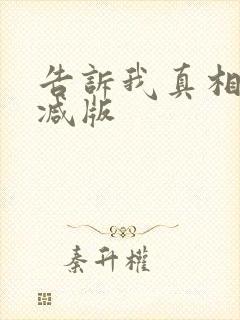 告訴我真相
減版
秦升權